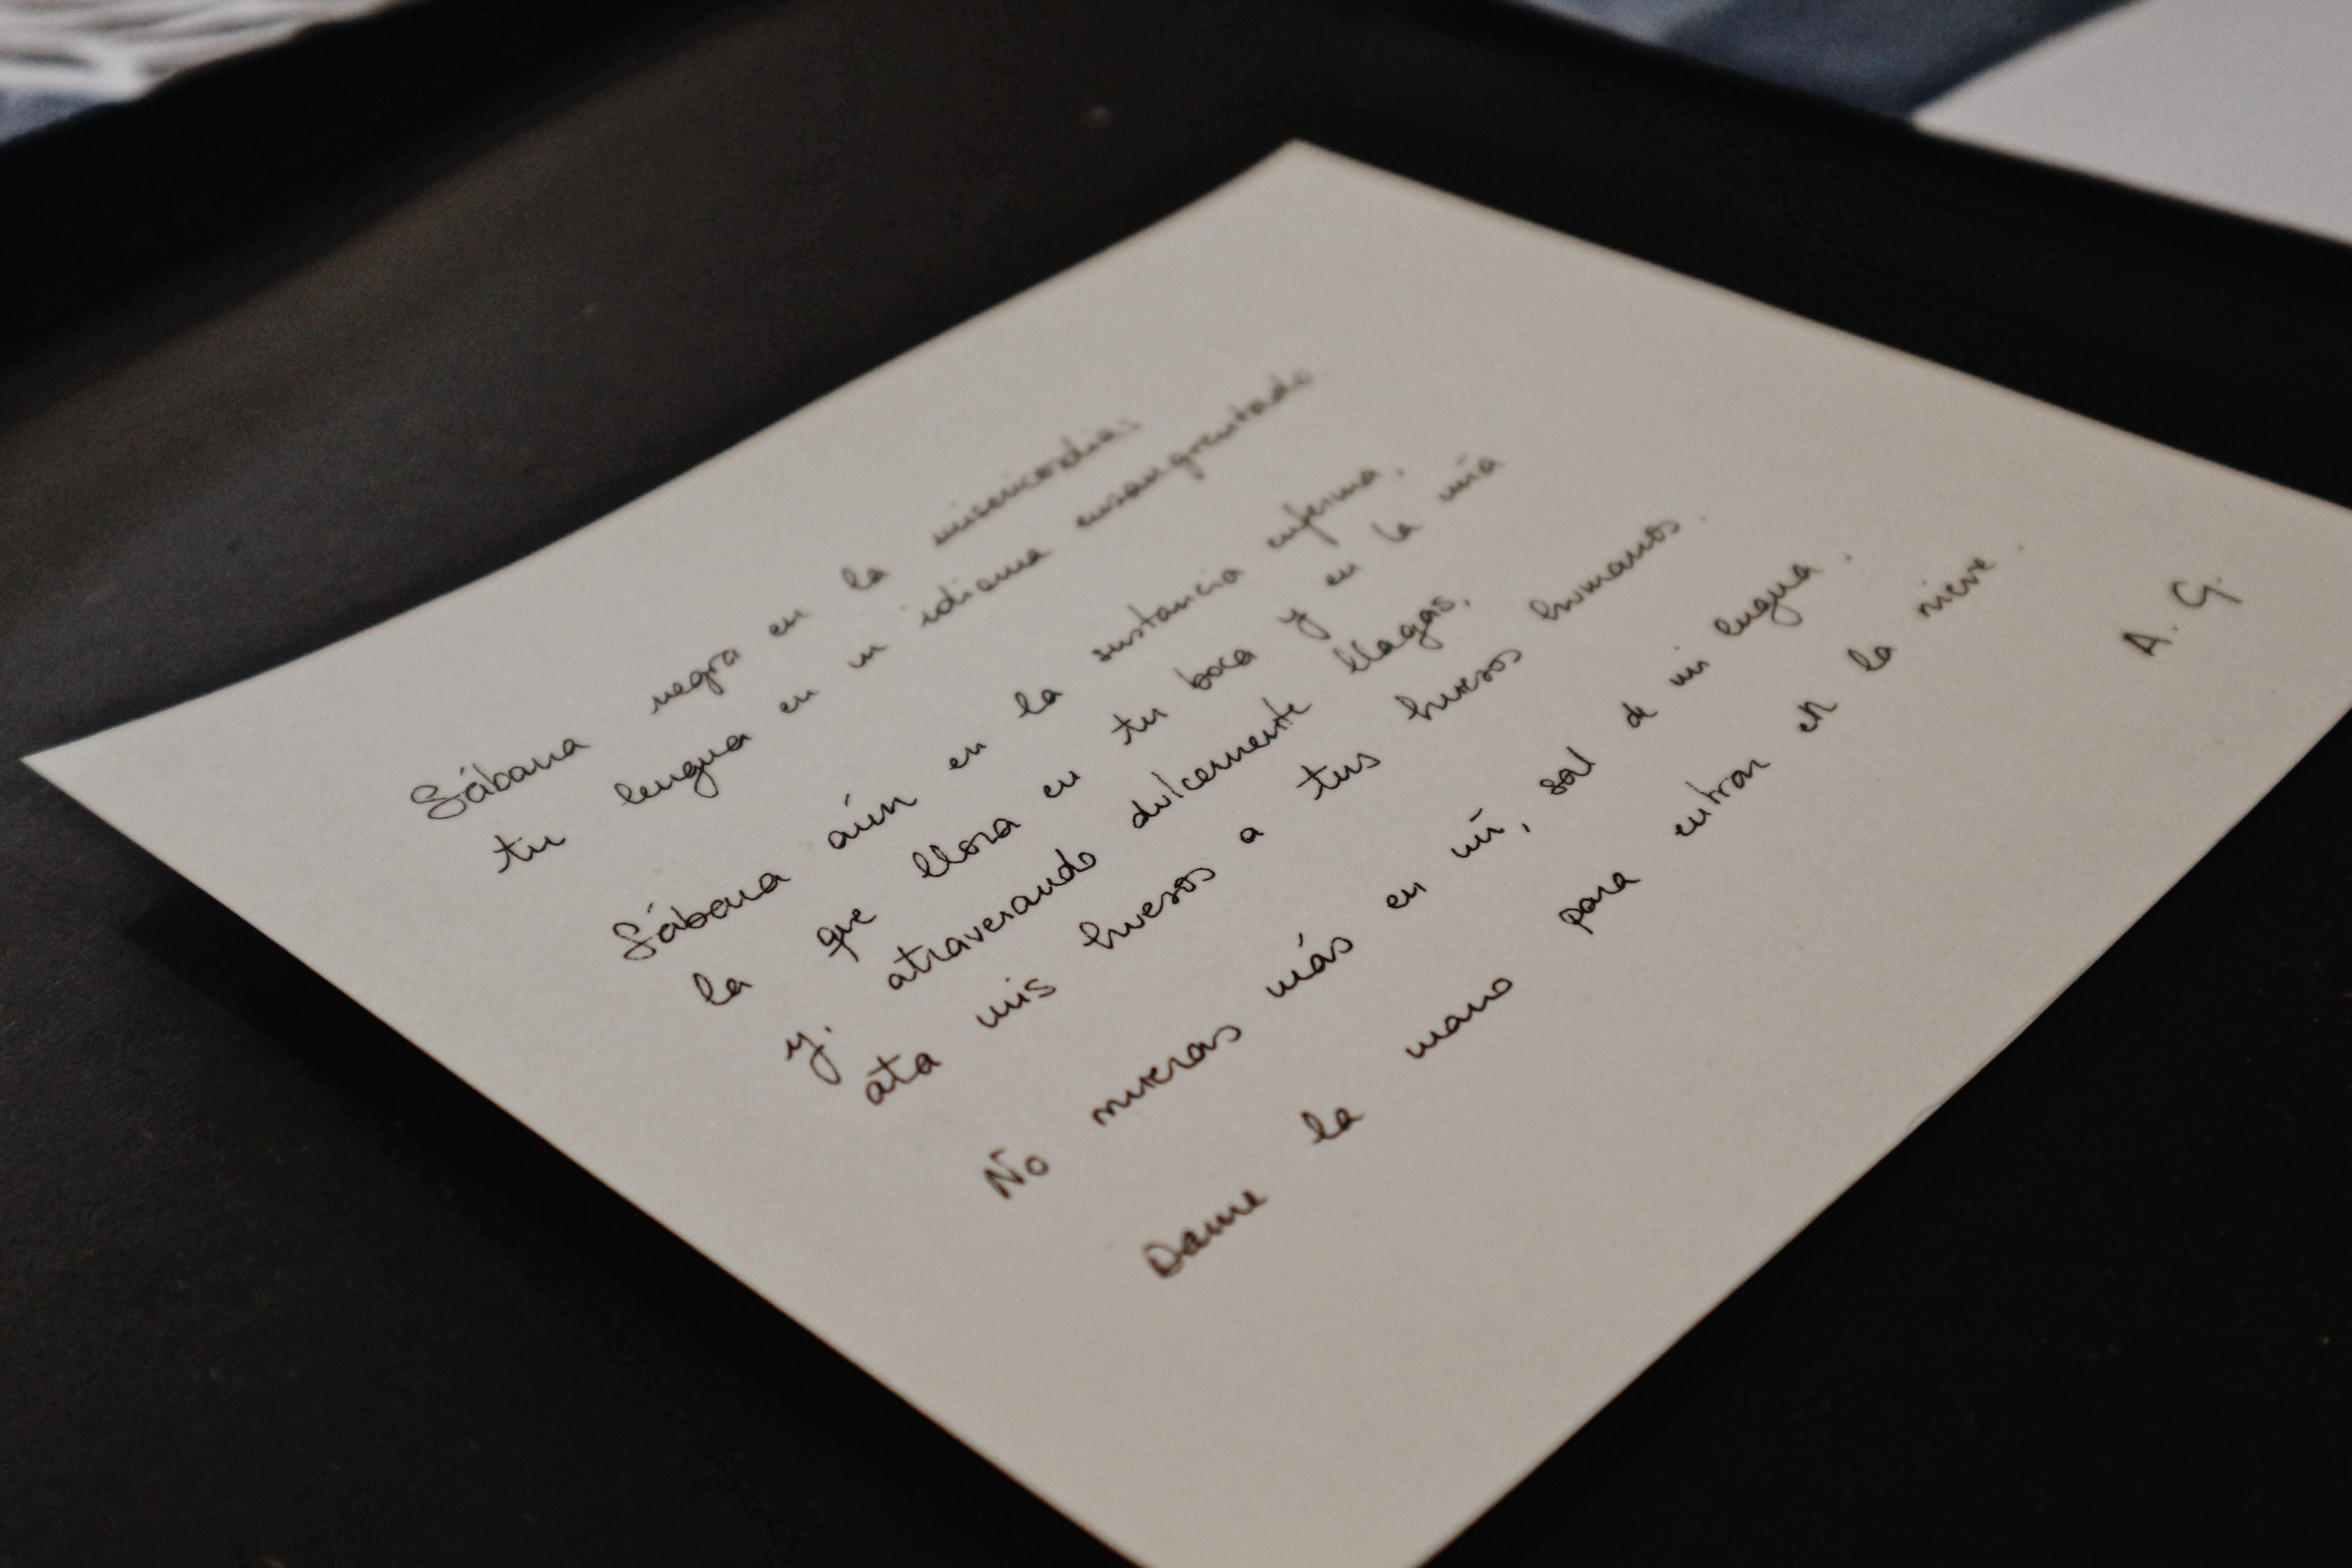 Sábana negra en la misericordia:
tu lengua en un idioma ensangrentado.
Sábana aún en la sustancia enferma,
la que llora en tu boca y en la mía
y, atravesando dulcemente llagas,
ata mis huesos a tus huesos humanos.
No mueras más en mí, sal de mi lengua.
Dame la mano para entrar en la nieve.
A. G.